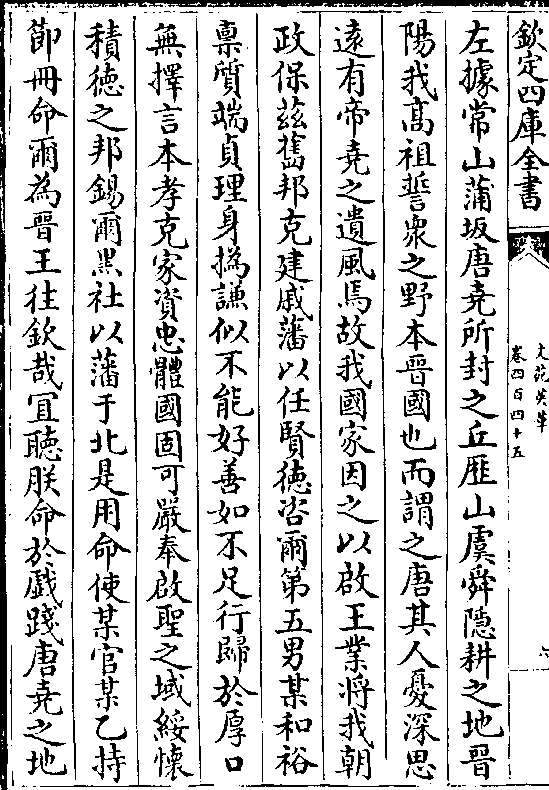 欽定四庫全書
文苑英華
卷四百四十五
六
左據常山蒲坂唐堯所封之丘歷山虞舜隱耕之地晉
陽我髙祖誓衆之野本晉國也而謂之唐其人憂深思
逺有帝堯之遺風焉故我國家因之以啟王業將我朝
政保兹舊邦克建戚藩以任賢徳咨爾第五男某和裕
禀質端貞理身撝謙似不能好善如不足行歸於厚口
無擇言本孝克家資忠體國固可嚴奉啟聖之域綏懷
積徳之邦錫爾黑社以藩于北是用命使某官某乙持
節冊命爾為晉王往欽哉宜聽朕命於戲踐唐堯之地